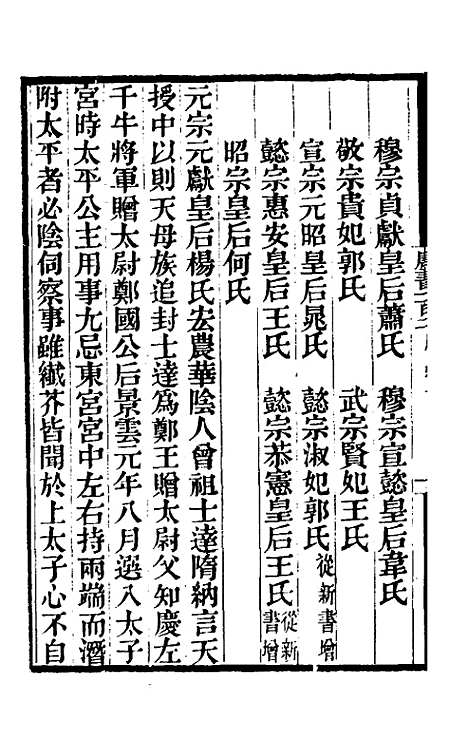 穆宗貞獻皇后蕭氏　穆宗宣懿皇后韋氏
敬宗貴妃郭氏　武宗賢妃王氏
宣宗元昭皇后晁氏　懿宗淑妃郭氏從新書增
懿宗惠安皇后王氏　懿宗恭憲皇后王氏從新書增
昭宗皇后何氏
元宗元獻皇后楊氏宏農華陰人曾祖士達隋納言天
授中以則天母族追封士達爲鄭王贈太尉父知慶左
千牛將軍贈太尉鄭國公后景雲元年八月選入太子
宮時太平公主用事尢忌東宮宮中左右持兩端而潛
附太平者必陰伺察事雖纎芥皆聞於上太子心不自